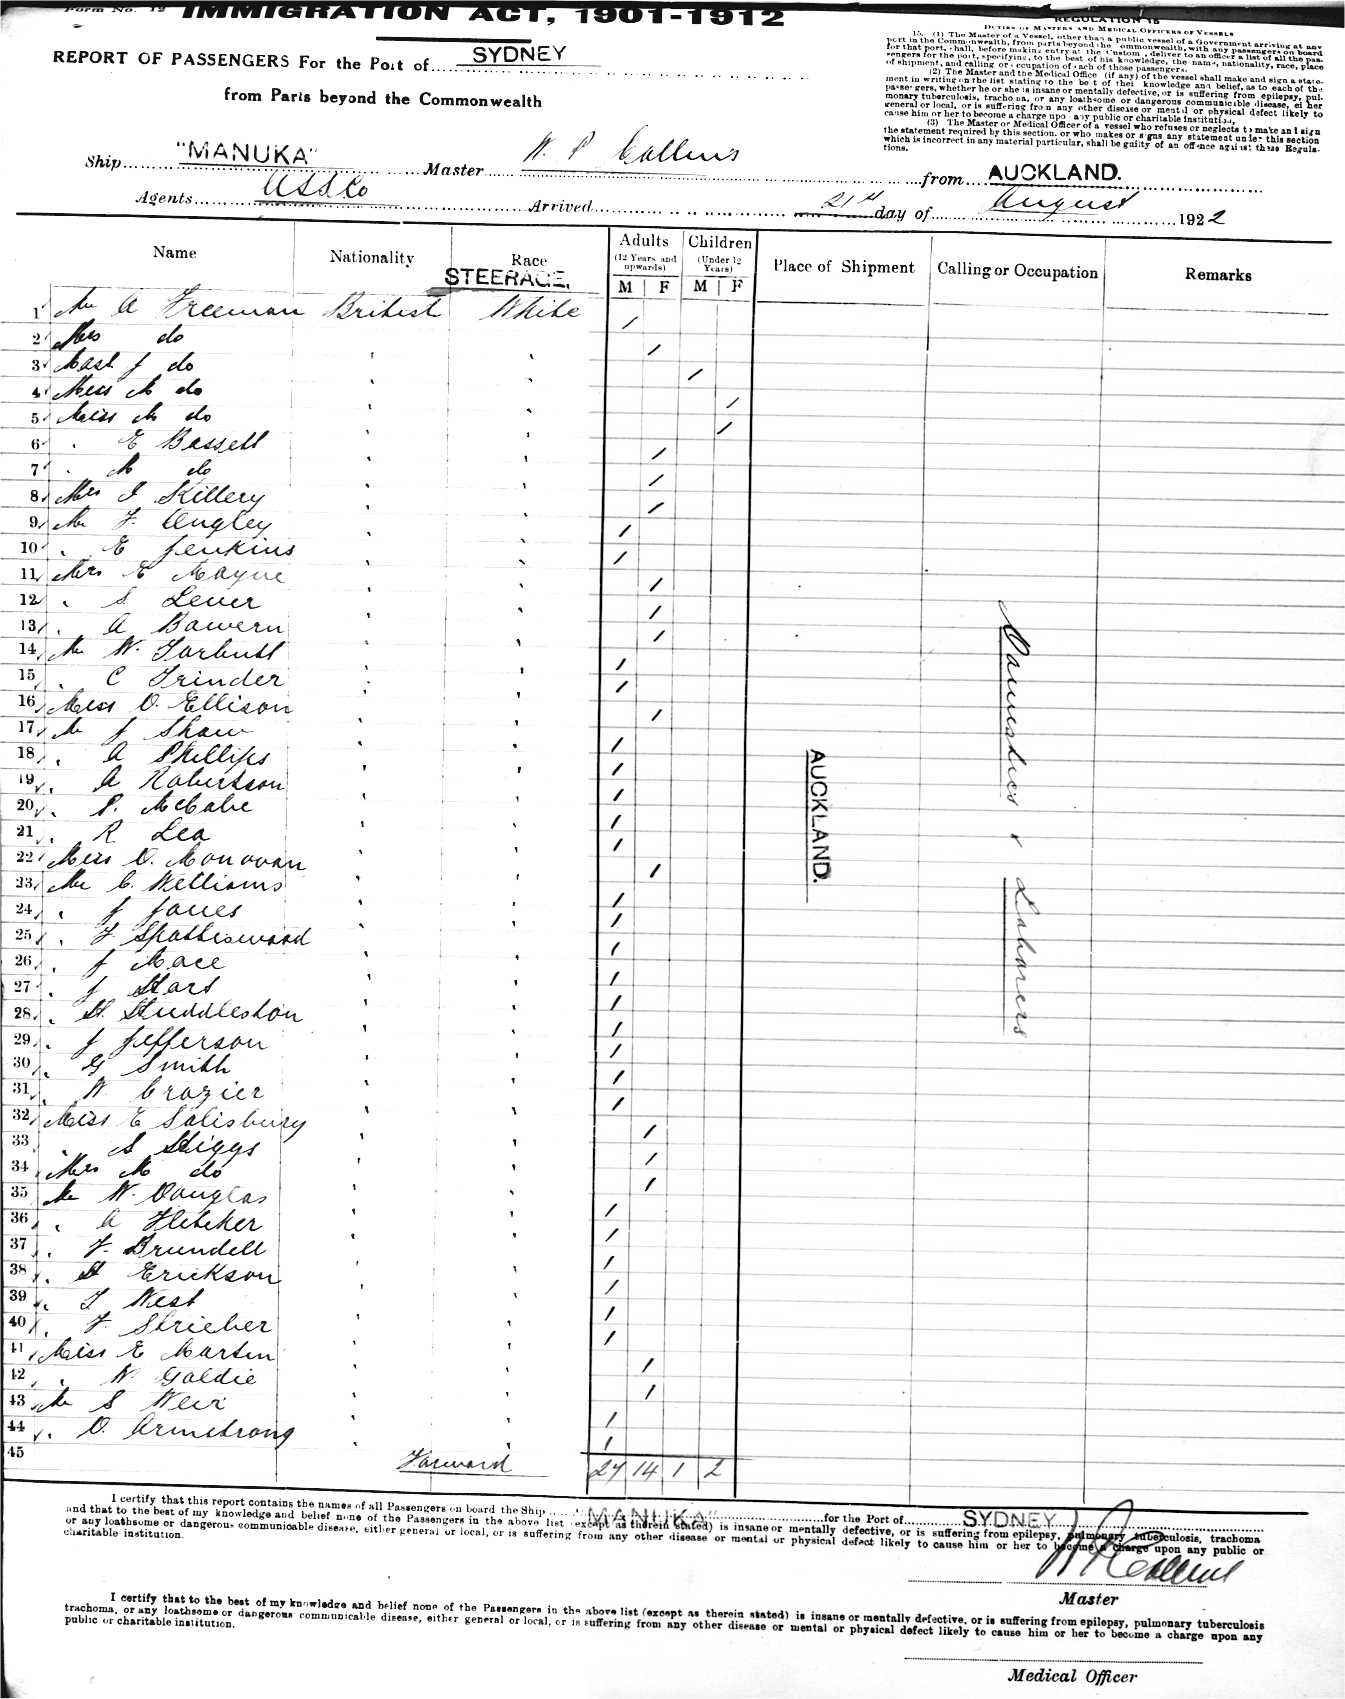 Form No. 12
IMMIGRATION ACT, 1901-1912
REPORT OF PASSENGERS For the Port of SYDNEY
from Parts beyond the Commonwealth
REGULATION 15
DUTIES OF MASTERS AND MEDICAL OFFICERS OF VESSELS
15. (1) The Master of a Vessel, other than a public vessel of a Government arriving at any
port in the Commonwealth, from parts beyond the Commonwealth, with any passengers on board
for that port, shall, before making entry at the Customs, deliver to an officer a list of all the pas-
sengers for the port, specifying, to the best of his knowledge, the name, nationality, race, place
of shipment, and calling or occupation of each of those passengers.
(2) The Master and the Medical Office (if any) of the vessel shall make and sign a state-
ment in writing on the list stating to the best of their knowledge and belief, as to each of the
passengers, whether he or she is insane or mentally defective, or is suffering from epilepsy, pul-
monary tuberculosis, trachoma, or any loathsome or dangerous communicable disease, either
general or local, or is suffering from any other disease or mental or physical defect likely to
cause him or her to become a charge upon any public or charitable institution.
(3) The Master or Medical Officer of a vessel who refuses or neglects to make and sign
the statement required by this section, or who makes or signs any statement under this section
which is incorrect in any material particular, shall be guilty of an offence against these Regula-
tions.
Ship "MANUKA" Master W. P. Collins from AUCKLAND.
Agents USSCo Arrived 21st day of August 1922
Name Nationality Race Adults (12 Years and upwards) Children (Under 12 Years) Place of Shipment Calling or Occupation Remarks
STEERAGE.
M F M F
1 Mr A Freeman British White /
2 Mrs do ' ' /
3 Mast J do ' ' /
4 Miss M do ' ' /
5 Miss M do ' ' /
6 . E Bassett ' ' /
7 . M do ' ' /
8 Mrs J Killery ' ' /
9 Mr F. Angley ' ' /
10 . E Jenkins ' ' /
11 Mrs E Mayne ' ' /
12 . S Lever ' ' /
13 . A Bawern ' ' /
14 Mr W. Tarbutt ' ' /
15 . C Trinder ' ' /
16 Miss O. Ellison ' ' /
17 Mr J Shaw ' ' /
18 . A Phillips ' ' /
19 . A Robertson ' ' /
20 . P. McCabe ' ' /
21 . R Lea ' ' /
22 Miss O. Monovan ' ' /
23 Mr C. Williams ' ' /
24 . J Jones ' ' /
25 . F Spottiswood ' ' /
26 . J Mace ' ' /
27 . J Hart ' ' /
28 . H. Huddleston ' ' /
29 . J Jefferson ' ' /
30 . G Smith ' ' /
31 . W Crozier ' ' /
32 Miss E Salisbury ' ' /
33 . S Higgs ' ' /
34 Mrs M do ' ' /
35 Mr W. Douglas ' ' /
36 . A Fletcher ' ' /
37 . F. Brundell ' ' /
38 . H Erickson ' ' /
39 . T West ' ' /
40 . F. Strieber ' ' /
41 Miss E Martin ' ' /
42 . W Goldie ' ' /
43 Mr S Weir ' ' /
44 . O. Armstrong ' ' /
45 Forward 27 14 1 2
AUCKLAND.
Domestics & Labourers
I certify that this report contains the names of all Passengers on board the Ship "MANUKA" for the Port of SYDNEY
and that to the best of my knowledge and belief none of the Passengers in the above list (except as therein stated) is insane or mentally defective, or is suffering from epilepsy, pulmonary tuberculosis, trachoma
or any loathsome or dangerous communicable disease, either general or local, or is suffering from any other disease or mental or physical defect likely to cause him or her to become a charge upon any public or
charitable institution.
W P Collins
Master
I certify that to the best of my knowledge and belief none of the Passengers in the above list (except as therein stated) is insane or mentally defective, or is suffering from epilepsy, pulmonary tuberculosis
trachoma, or any loathsome or dangerous communicable disease, either general or local, or is suffering from any other disease or mental or physical defect likely to cause him or her to become a charge upon any
public or charitable institution.
Medical Officer